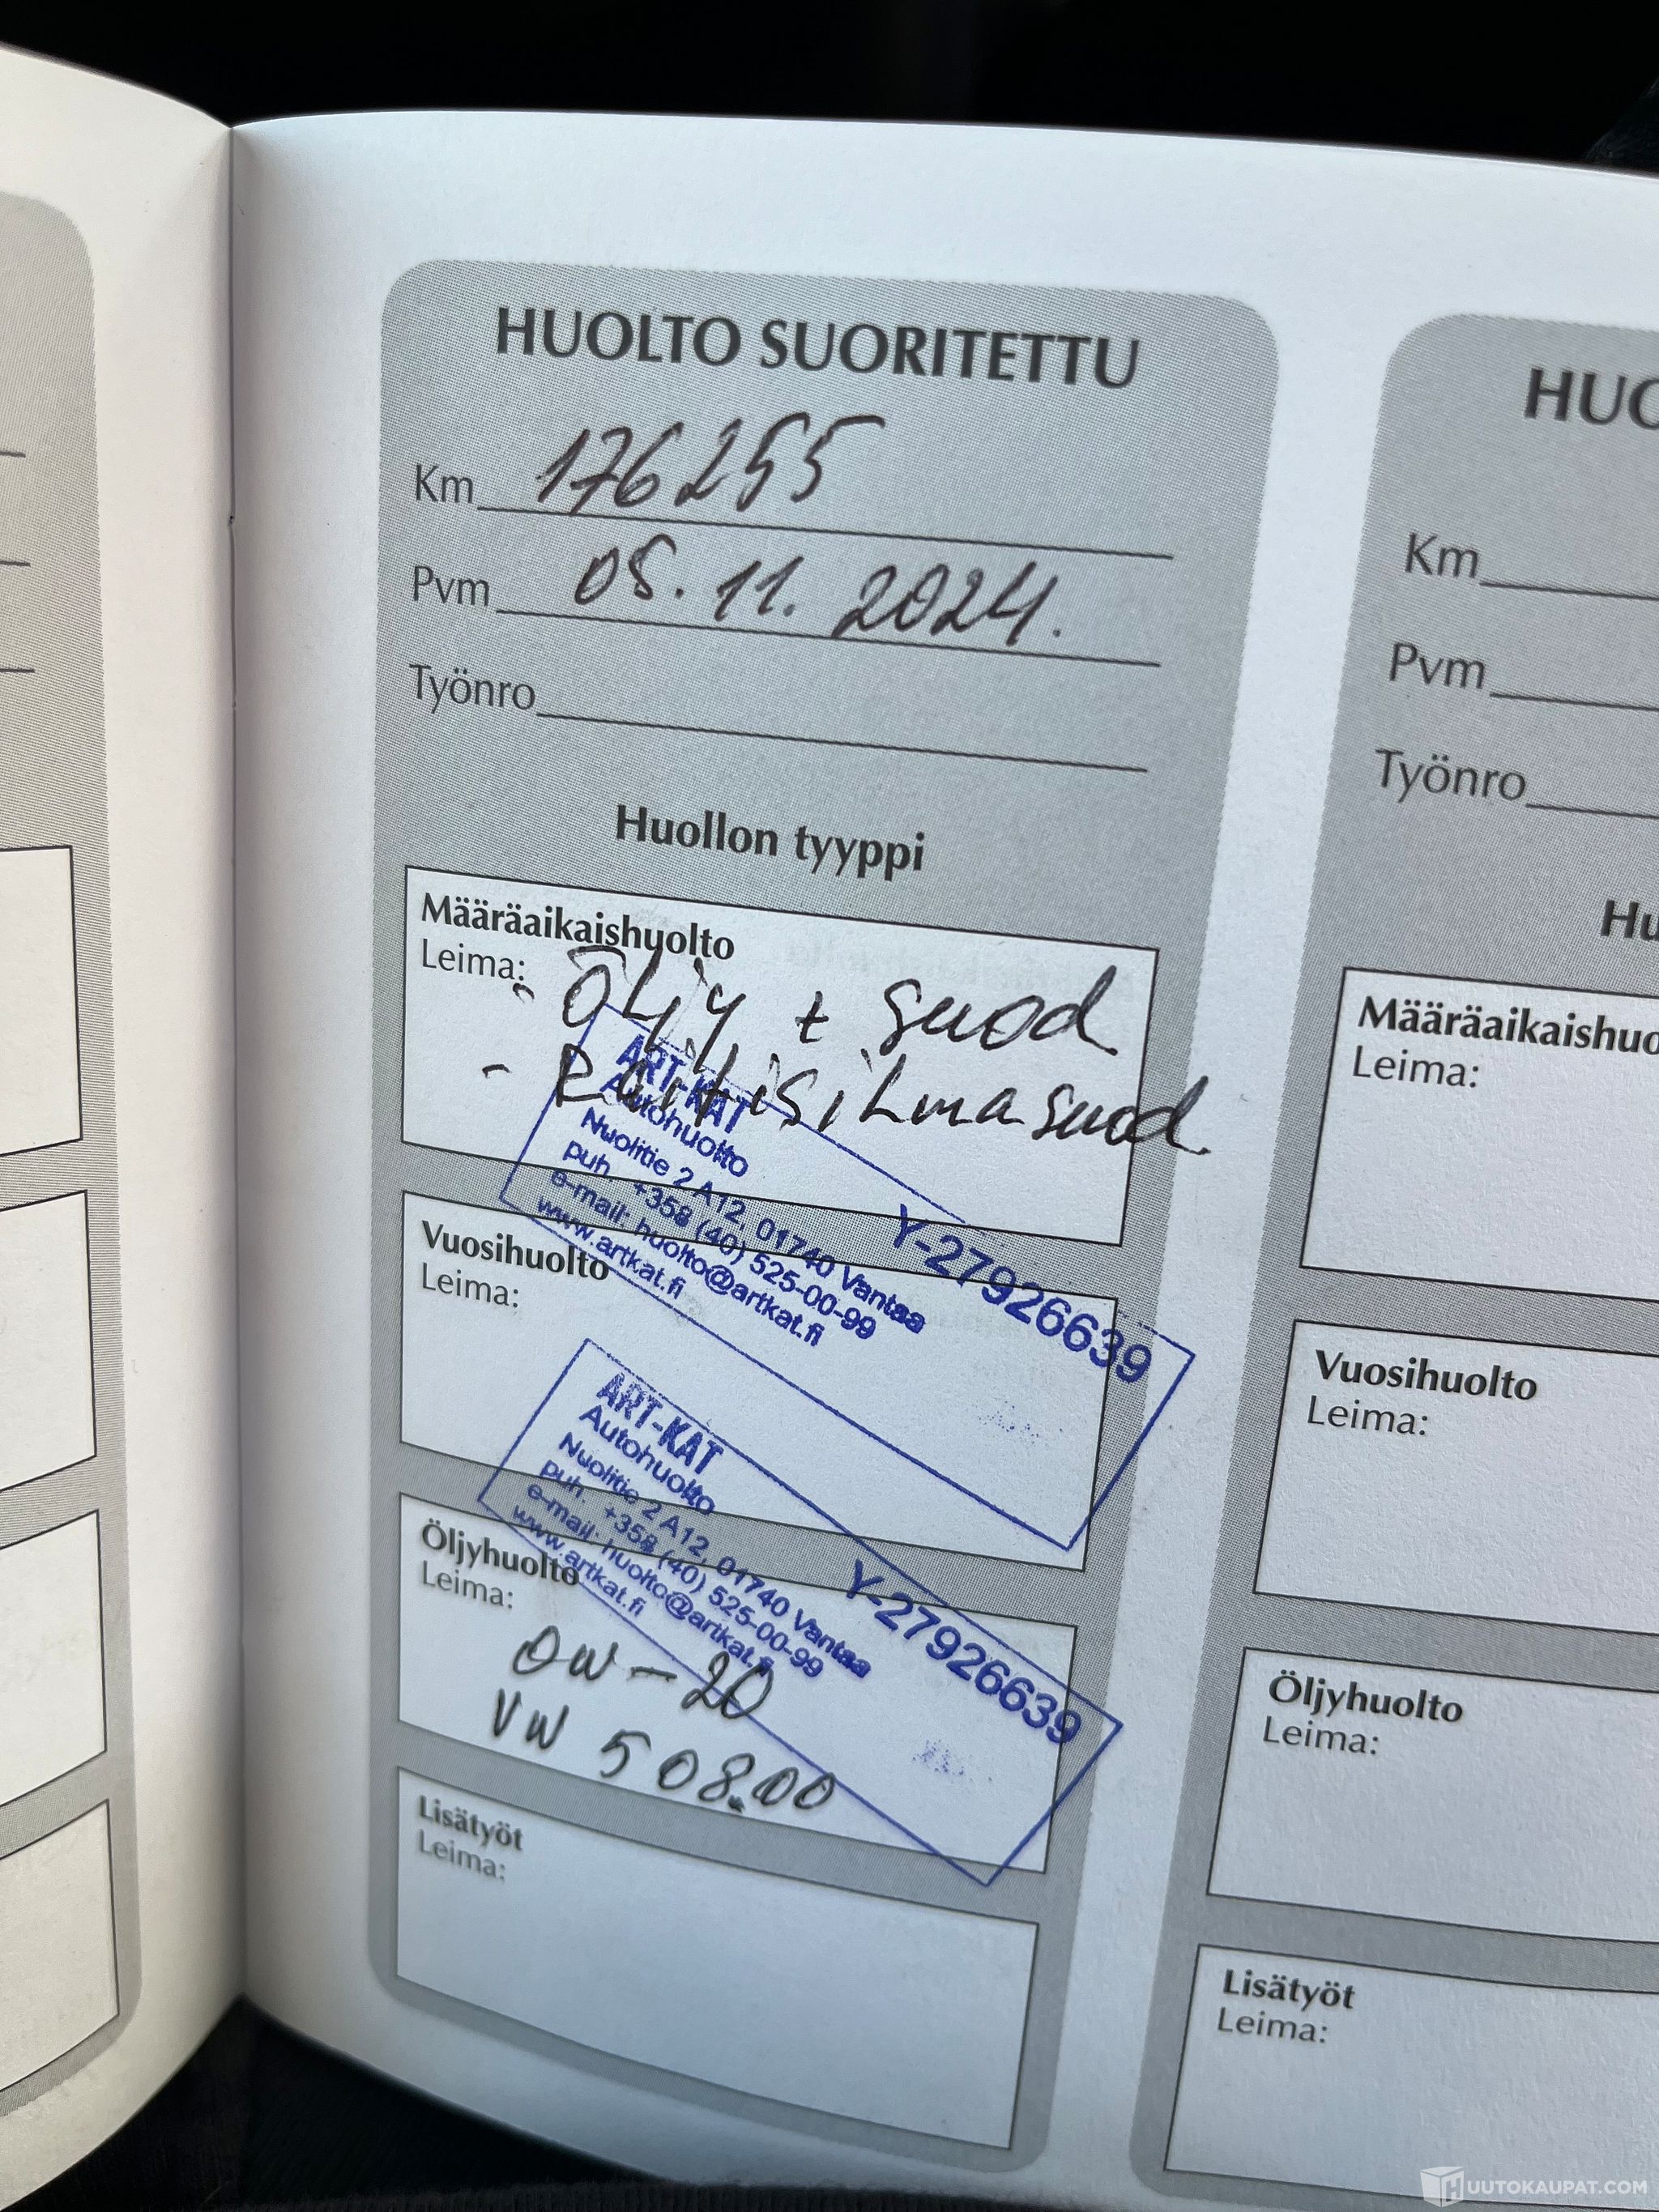 HUOLTO SUORITETTU
Km 176255
Pvm 05.11.2024.
Työnro
Huollon tyyppi
Määräaikaishuolto
Leima:
- ÖLjy + suod
- RaitisiLmasuod.
ART-KAT
Autohuolto
Nuolitie 2 A12, 01740 Vantaa
puh. +358 (40) 525-00-99
e-mail: huolto@artkat.fi
www.artkat.fi
Y-27926639
Vuosihuolto
Leima:
ART-KAT
Autohuolto
Nuolitie 2 A12, 01740 Vantaa
puh. +358 (40) 525-00-99
e-mail: huolto@artkat.fi
www.artkat.fi
Y-27926639
Öljyhuolto
Leima:
0W-20
VW 508.00
Lisätyöt
Leima:
HUO
Km
Pvm
Työnro
Hu
Määräaikaishuo
Leima:
Vuosihuolto
Leima:
Öljyhuolto
Leima:
Lisätyöt
Leima:
HUUTOKAUPAT.COM